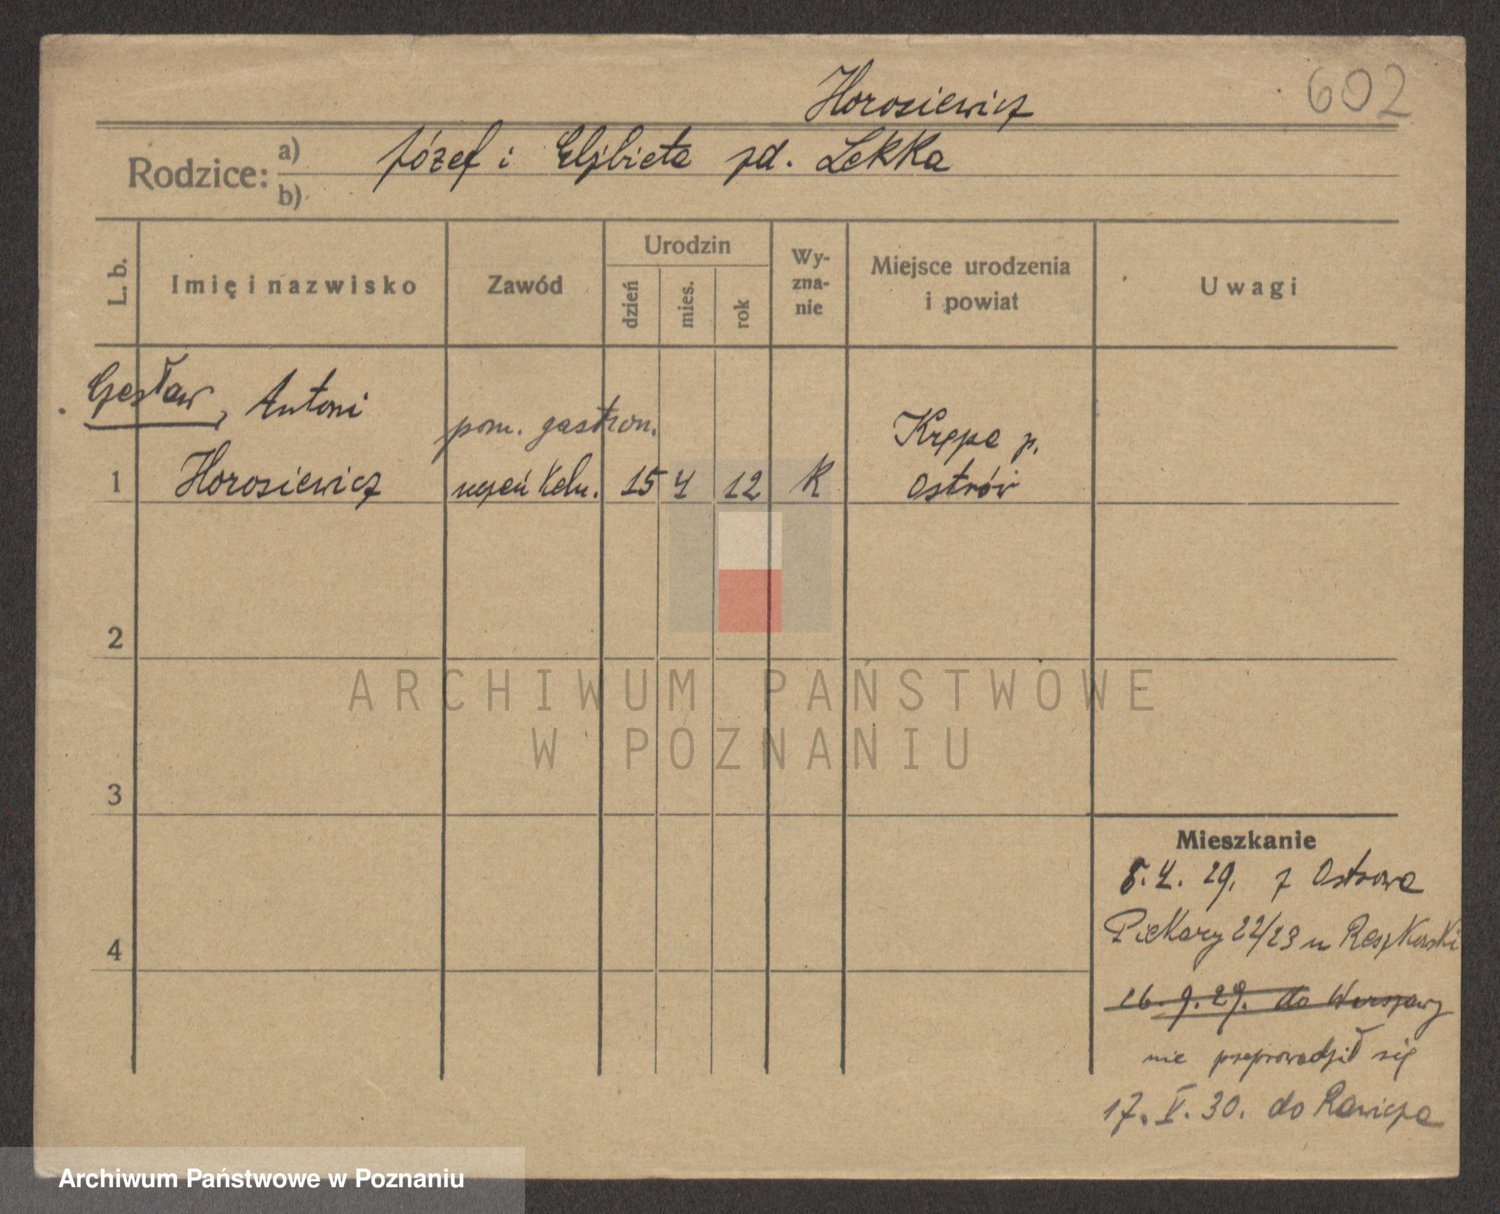 602
Horosiewicz
Rodzice: a) Józef i Elżbieta zd. Lekka
b)
L. b.
Imię i nazwisko
Zawód
Urodzin
dzień
mies.
rok
Wy-
zna-
nie
Miejsce urodzenia
i powiat
Uwagi
Czesław, Antoni
pom. gastron.
Krępa p.
1 Horosiewicz uczeń keln. 15 4 12 k Ostrów
2
3
4
Mieszkanie
5.4.29. z Ostrowa
Piekary 22/23 u Reszkowski
16.9.29. do Warszawy
nie przeprowadził się
17.V.30. do Rawicza
ARCHIWUM PAŃSTWOWE
W POZNANIU
Archiwum Państwowe w Poznaniu